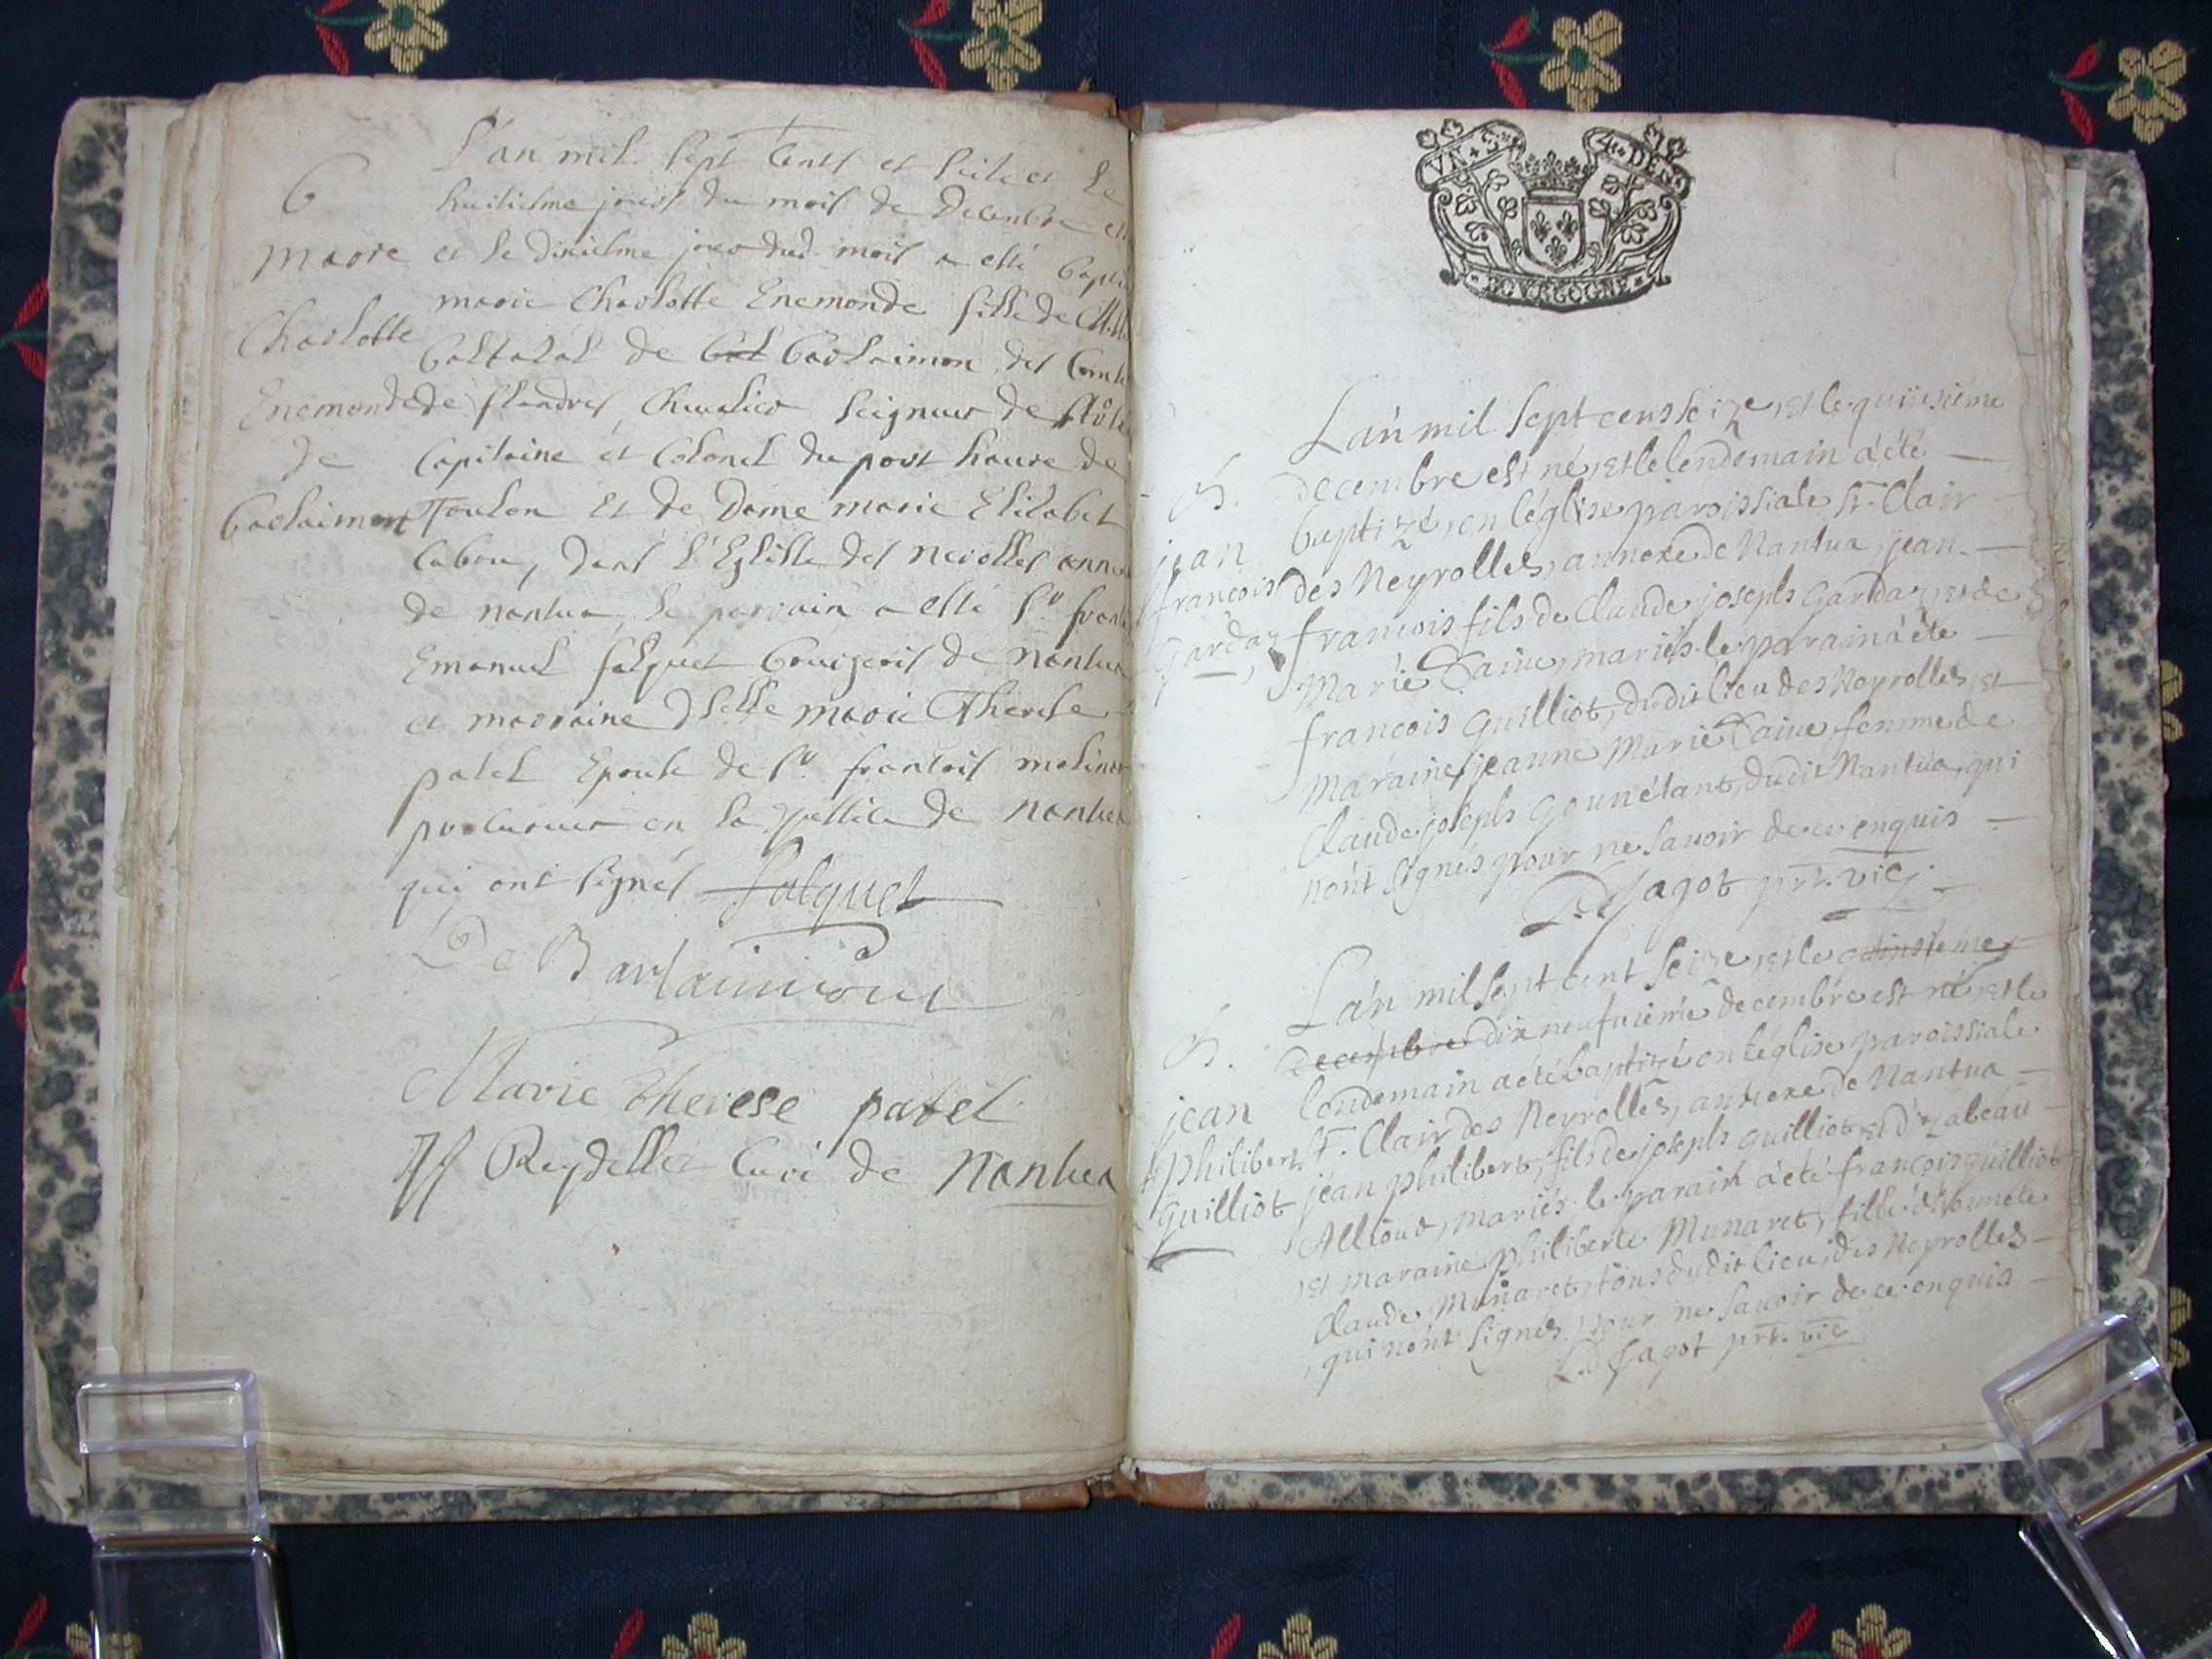 L'an mil sept cents et seize et le
6
huitiesme jour du mois de decembre
marie
et le dixiesme jour dud. mois a esté bapti
marie Charlotte Enemonde fille de
Charlotte
Baltasal de Bal Barlaimon des Comte
Enemonde
de flandres, chevalier seigneur de
de
Capitaine et Colonel du port havre de
Barlaimont
Toulon Et de Dame marie Elisabet
Cabou, dans l'Eglisse des nerolles anne
de nantua, le parrain a esté Sr. franc
Emanuel falquet bourgeois de nantua
et marraine dselle marie Therese
patel Epouse de Sr. francois molinar
procureur en la justice de nantua
qui ont signés falquet
De Barlaimont
Marie therese patel
Reydellet Curé de Nantua
VN + S 4 + DEN
BOVRGOGNE
L'an mil sept cens seize, et le quinsiéme
B.
decembre est né, et le lendemain a été
baptizé, en l'église paroissiale St. Clair
jean
francois
des Neyrolles, annexe de Nantua, jean
Gardaz
francois fils de Claude joseph Gardaz, et de
Marie Laine, mariés. le parain a été
francois Guilliot, du dit lieu des Neyrolles, et
maraine, jeanne Marie Laine femme de
Claude joseph Gounétant, dudit Nantua, qui
nont signés pour ne savoir de ce enquis
Jagot prt. vic.
L'an mil sept cent seize, et le quinsieme
B.
decembre dix neufvieme decembre est né, et le
lendemain a été baptizé en l'église paroissiale
jean
St. Clair des Neyrolles, annexe de Nantua
philibert
jean philibert, fils de joseph guilliot et d'yzabeau
guilliot
Alliout, mariés. le parain a été francois guilliot
et maraine philiberte Munaret, fille d'honnete
Claude Munaret, tous dudit lieu, des Neyrolles
qui nont signés, pour ne savoir de ce enquis
Jagot prt. vic